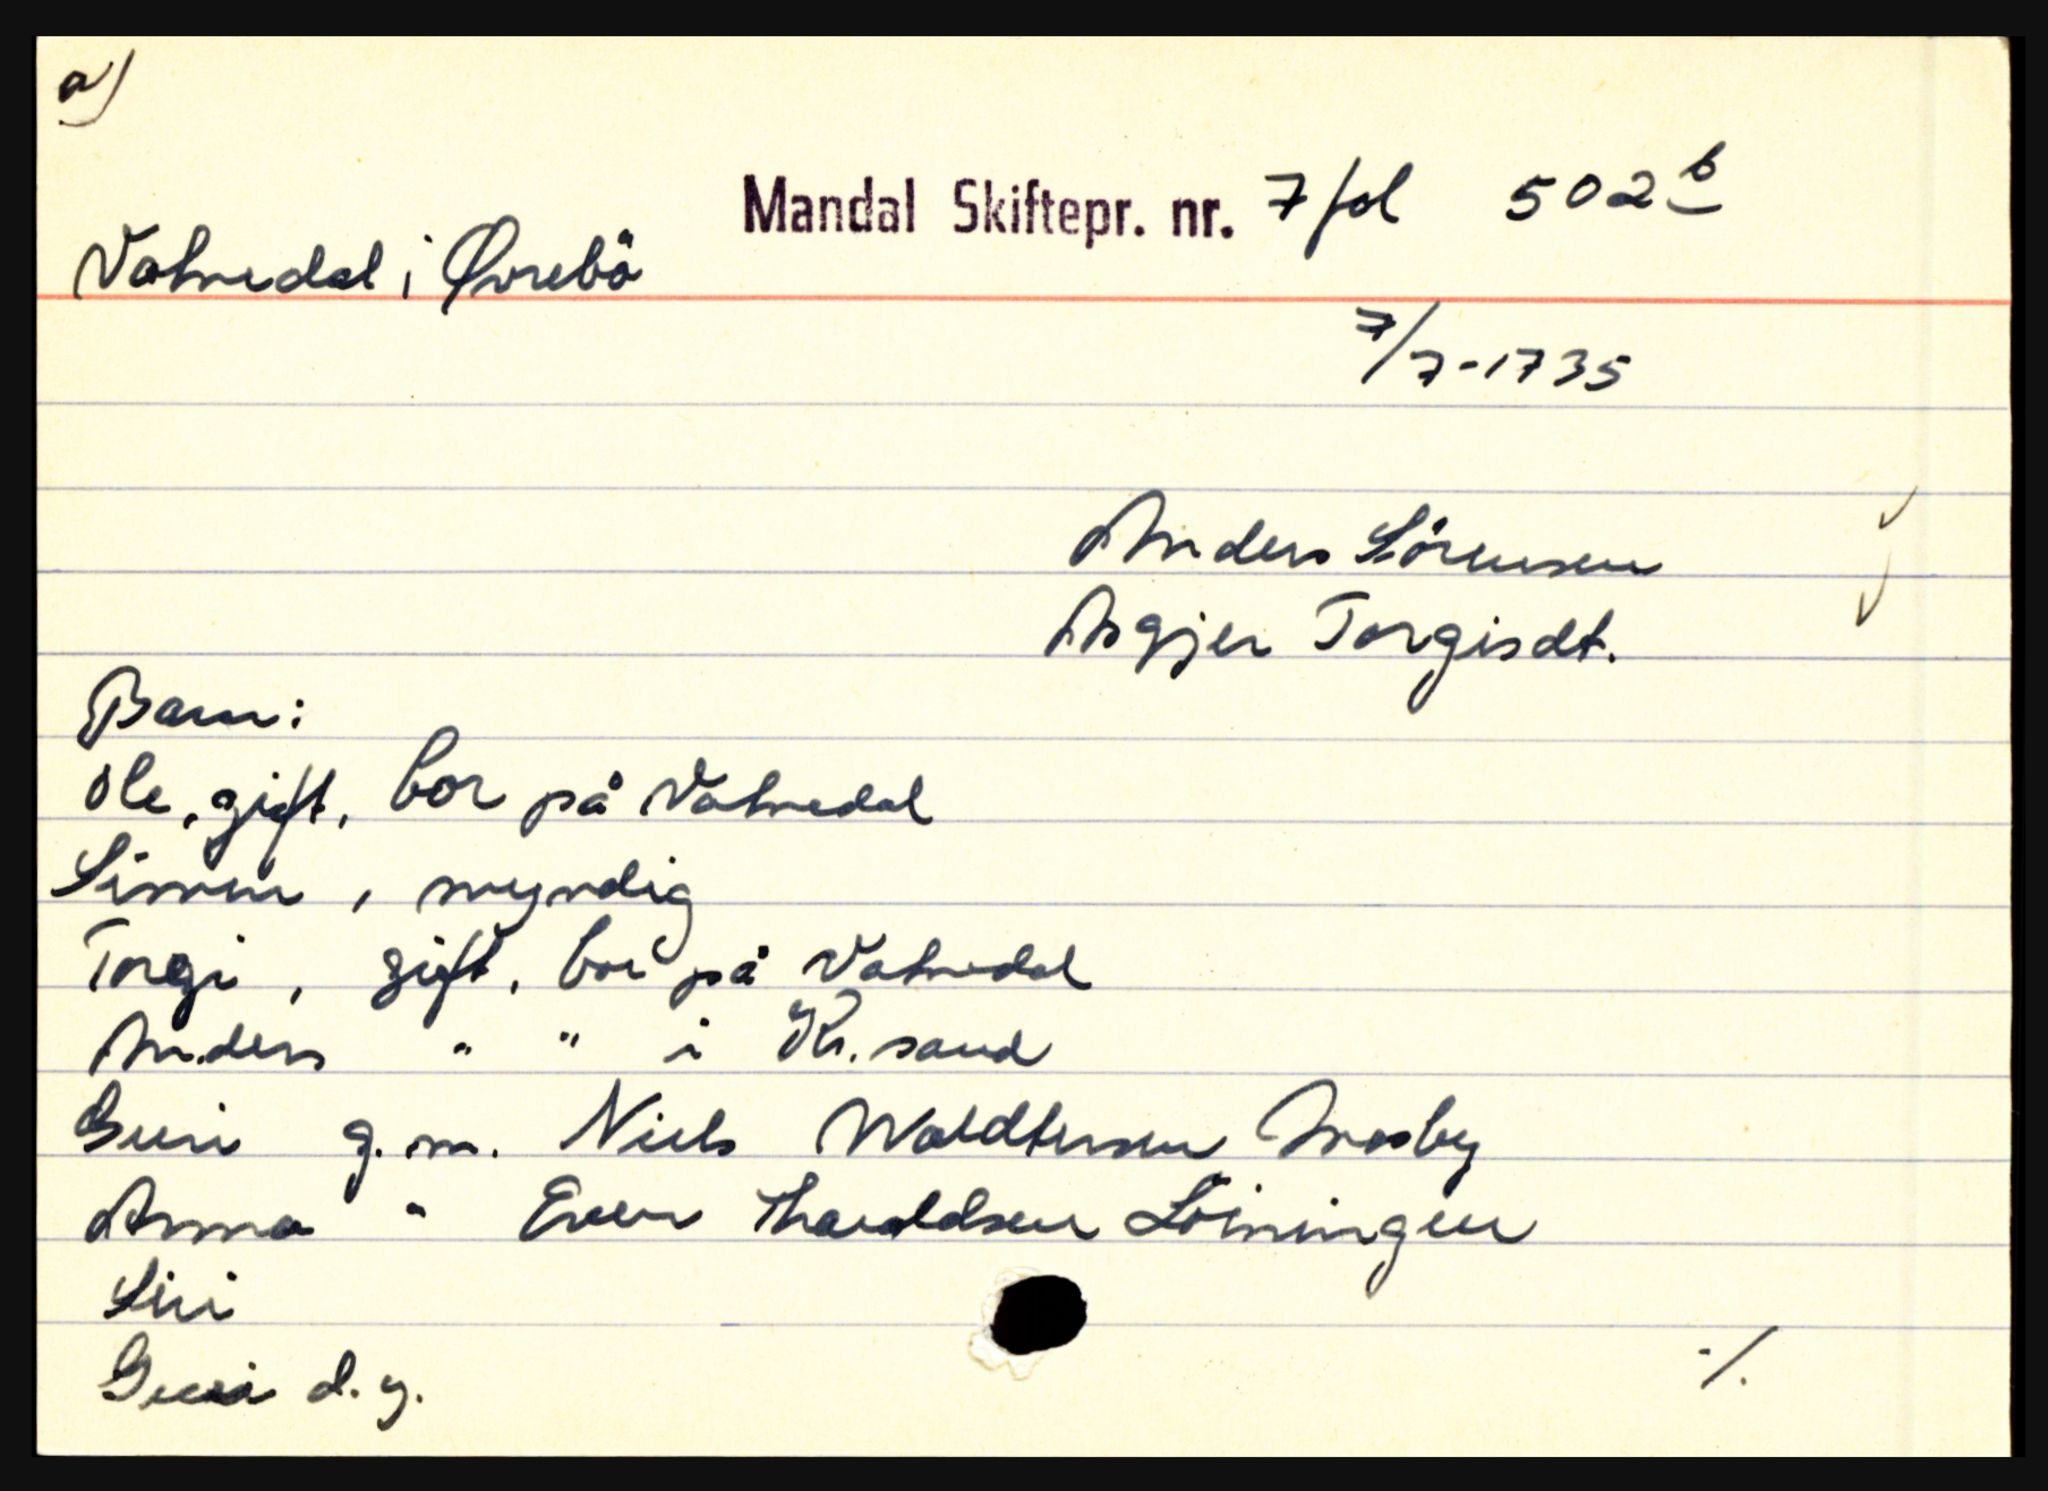 a)
Mandal Skiftepr. nr. 7 fol 502 b
Vatnedal i Øvrebö
7/7-1735
Anders Sörensen
Asgjer Torgisdt.
Barn:
Ole, gift, bor på Vatnedal
Simen, myndig
Torgi, gift, bor på Vatnedal
Anders " " i Kr.sand
Guri g.m. Niels Woldtersen Mosby
Anna " Even Tharaldsen Löiningen
Siri
Guri d.y.
./.